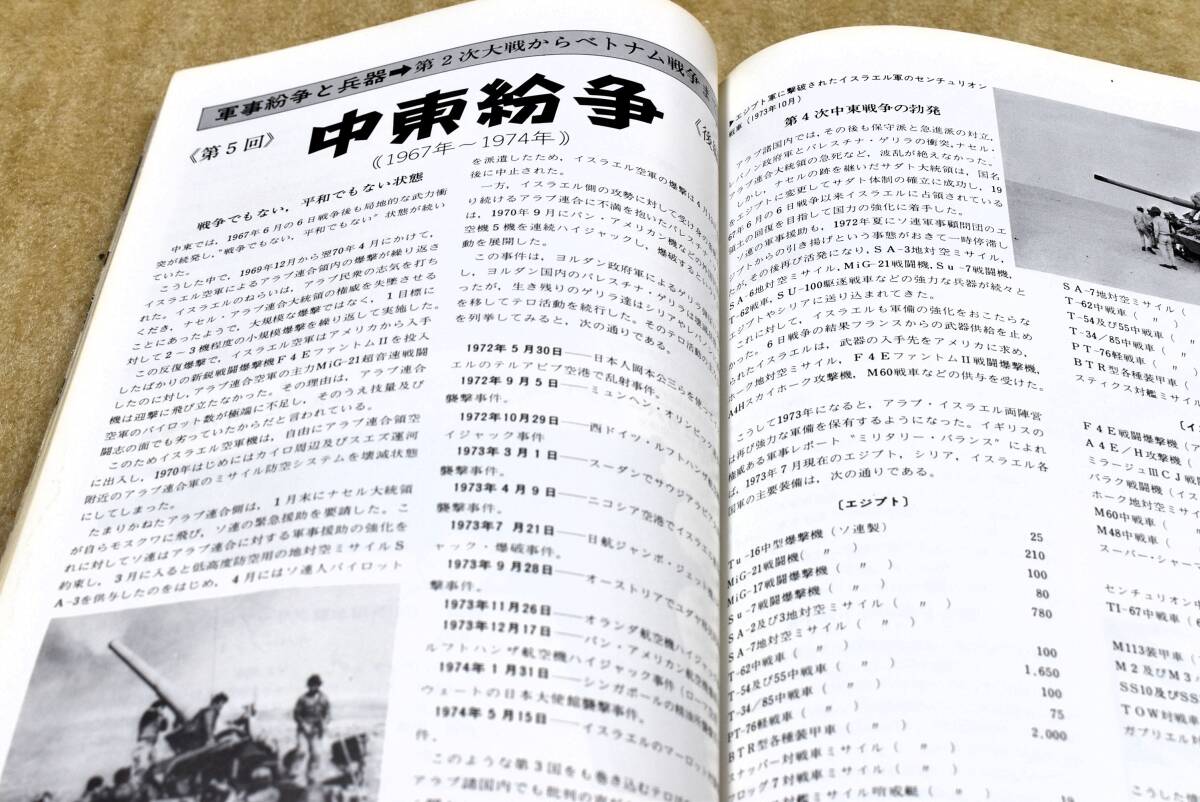 軍事紛争と兵器➡第2次大戦からベトナム戦争ま
《第5回》
中東紛争
《後
《1967年～1974年》
戦争でもない，平和でもない状態
中東では，1967年6月の6日戦争後も局地的な武力衝
突が続発し，“戦争でもない，平和でもない”状態が続い
ていた。
こうした中で，1969年12月から翌70年4月にかけて，
イスラエル空軍によるアラブ連合領内の爆撃が繰り返さ
れた。イスラエルのねらいは，アラブ民衆の志気を打ち
くだき，ナセル・アラブ連合大統領の権威を失墜させる
ことにあったようで，大規模な爆撃ではなく，1目標に
対して2－3機程度の小規模爆撃を繰り返して実施した。
この反復爆撃で，イスラエル空軍はアメリカから入手
したばかりの新鋭戦闘爆撃機F4EファントムⅡを投入
したのに対し，アラブ連合空軍の主力MiG-21超音速戦闘
機は迎撃に飛び立たなかった。その理由は，アラブ連合
空軍のパイロット数が極端に不足し，そのうえ技量及び
闘志の面でも劣っていたからだと言われている。
このためイスラエル空軍機は，自由にアラブ連合領空
に出入し，1970年はじめにはカイロ周辺及びスエズ運河
附近のアラブ連合軍のミサイル防空システムを壊滅状態
にしてしまった。
たまりかねたアラブ連合側は，1月末にナセル大統領
が自らモスクワに飛び，ソ連の緊急援助を要請した。こ
れに対してソ連はアラブ連合に対する軍事援助の強化を
約束し，3月に入ると低高度防空用の地対空ミサイルS
A-3を供与したのをはじめ，4月にはソ連人パイロット
を派遣したため，イスラエル空軍の爆撃は4月
後に中止された。
一方，イスラエル側の攻勢に対して受け身
り続けるアラブ連合に不満を抱いたパレスチナ
は，1970年9月にパン・アメリカン機など
空機5機を連続ハイジャックし，爆破する
動を展開した。
この事件は，ヨルダン政府軍によるゲリラ
し，ヨルダン国内のパレスチナ・ゲリラは壊滅
ったが，生き残りのゲリラ達はシリアやレバノン
を移してテロ活動を続行した。そのテロ活動の
を列挙してみると，次の通りである。
1972年5月30日――日本人岡本公三らを使って
エルのテルアビブ空港で乱射事件。
1972年9月5日――ミュンヘン・オリンピック
襲撃事件。
1972年10月29日――西ドイツ・ルフトハンザ
イジャック事件
1973年3月1日――スーダンでサウジアラビア
襲撃事件。
1973年4月9日――ニコシア空港でイスラエル
襲撃事件。
1973年7月21日――日航ジャンボ・ジェット機
ャック・爆破事件。
1973年9月28日――オーストリアでユダヤ
撃事件。
1973年11月26日――オランダ航空機ハイジャッ
1973年12月17日――パン・アメリカン航空機
ルフトハンザ航空機ハイジャック事件（ローマ
1974年1月31日――シンガポールの精油所
ウェートの日本大使館襲撃事件。
1974年5月15日――イスラエルのマーロット
件。
このような第3国をも巻き込むテロ
アラブ諸国内でも批判の
▶エジプト軍に撃破されたイスラエル軍のセンチュリオン
戦車（1973年10月）
第4次中東戦争の勃発
アラブ諸国内では，その後も保守派と急進派の対立，
バノン政府軍とパレスチナ・ゲリラの衝突，ナセル・
アラブ連合大統領の急死など，波乱が絶えなかった。
しかし，ナセルの跡を継いだサダト大統領は，国名
をエジプトに変更してサダト体制の確立に成功し，19
67年6月の6日戦争以来イスラエルに占領されている
領土の回復を目指して国力の強化に着手した。
ソ連の軍事援助も，1972年夏にソ連軍事顧問団のエ
ジプトからの引き揚げという事態がおきて一時停滞し
たが，その後再び活発になり，SA-3地対空ミサイル，
SA-6地対空ミサイル，MiG-21戦闘機，Su-7戦闘機，
T-62戦車，SU-100駆逐戦車などの強力な兵器が続々と
エジプトやシリアに送り込まれてきた。
これに対して，イスラエルも軍備の強化をおこたらな
かった。6日戦争の結果フランスからの武器供給を止め
られたイスラエルは，武器の入手先をアメリカに求め，
ホーク地対空ミサイル，F4EファントムⅡ戦闘爆撃機，
A4Hスカイホーク攻撃機，M60戦車などの供与を受けた。
こうして1973年になると，アラブ・イスラエル両陣営
は再び強力な軍備を保有するようになった。イギリスの
権威ある軍事レポート“ミリタリー・バランス”によれ
ば，1973年7月現在のエジプト，シリア，イスラエル各
国軍の主要装備は，次の通りである。
［エジプト］
Tu-16中型爆撃機（ソ連製） 25
MiG-21戦闘機（ 〃 ） 210
MiG-17戦闘爆撃機（ 〃 ） 100
Su-7戦闘爆撃機（ 〃 ） 80
SA-2及び3地対空ミサイル（ 〃 ） 780
SA-7地対空ミサイル（ 〃 ）
T-62中戦車（ 〃 ） 100
T-54及び55中戦車（ 〃 ） 1,650
T-34/85中戦車（ 〃 ） 100
PT-76軽戦車（ 〃 ） 75
BTR型各種装甲車（ 〃 ） 2,000
スナッパー対戦車ミサイル（ 〃 ）
ロッグ7対戦車ミサイル（ 〃 ）
ミサイル哨戒艇（ 〃 ）
SA-7地対空ミサイル（
T-62中戦車（ 〃
T-54及び55中戦車（
T-34/85中戦車（ 〃
PT-76軽戦車（ 〃
BTR型各種装甲車（
スティクス対艦ミサイル
［イ
F4E戦闘爆撃機（ア
A4E/H攻撃機（
ミラージュⅢCJ戦
バラク戦闘機（イス
ホーク地対空ミサイ
M60中戦車（
M48中戦車（
スーパー・シャー
センチュリオン中
TI-67中戦車（
M113装甲車（
M2及びM3
SS10及びSS
TOW対戦車
ガブリエル対
こうした情